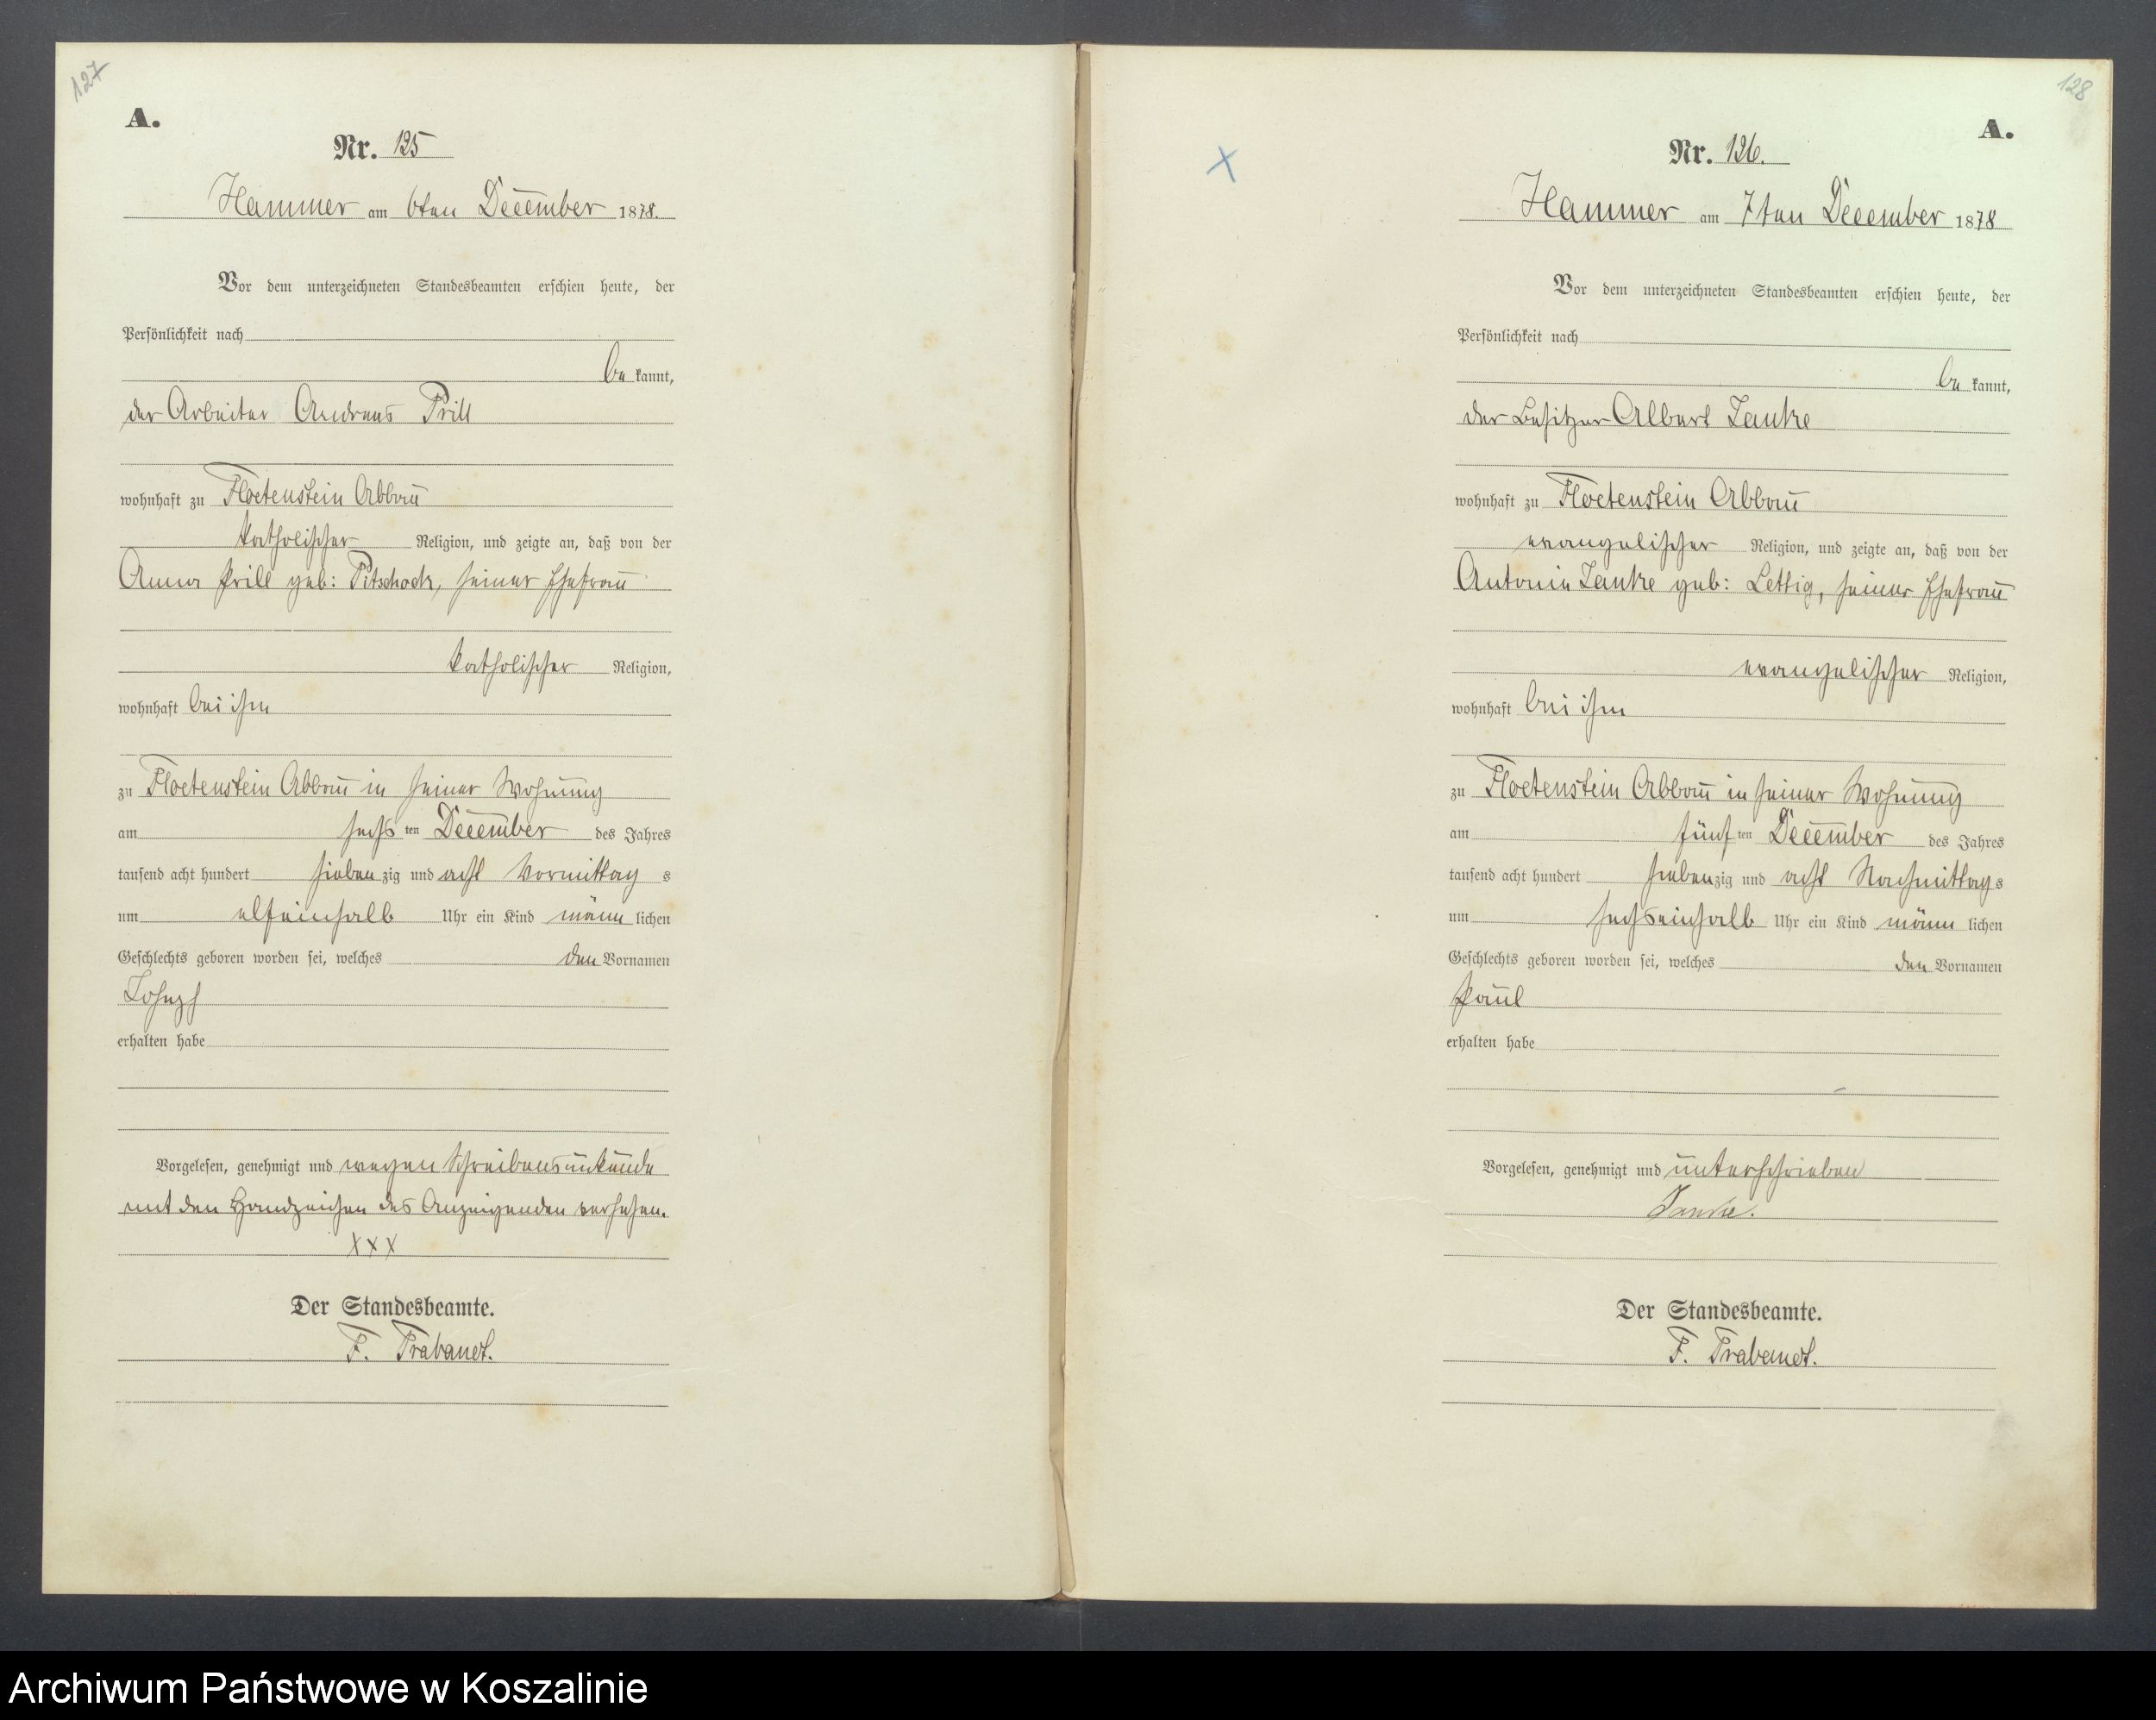 127
A.
Nr. 125
Hammer am 6ten December 1878.
Vor dem unterzeichneten Standesbeamten erschien heute, der
Persönlichkeit nach
be kannt,
der Arbeiter Andreas Prill
wohnhaft zu Floetenstein Abbau
katholischer Religion, und zeigte an, daß von der
Anna Prill geb: Pitschock, seiner Ehefrau
katholischer Religion,
wohnhaft bei ihm
zu Floetenstein Abbau in seiner Wohnung
am sechs ten December des Jahres
tausend acht hundert sieben zig und acht Vormittag s
um elfeinhalb Uhr ein Kind männ lichen
Geschlechts geboren worden sei, welches den Vornamen
Joseph
erhalten habe
Vorgelesen, genehmigt und wegen Schreibensunkunde
mit den Handzeichen des Anzeigenden versehen.
XXX
Der Standesbeamte.
F. Trabandt.
128
A.
X
Nr. 126.
Hammer am 7ten December 1878
Vor dem unterzeichneten Standesbeamten erschien heute, der
Persönlichkeit nach
be kannt,
der Besitzer Albert Janke
wohnhaft zu Floetenstein Abbau
evangelischer Religion, und zeigte an, daß von der
Antonie Janke geb: Lettig, seiner Ehefrau
evangelischer Religion,
wohnhaft bei ihm
zu Floetenstein Abbau in seiner Wohnung
am fünf ten December des Jahres
tausend acht hundert sieben zig und acht Nachmittag s
um sechseinhalb Uhr ein Kind männ lichen
Geschlechts geboren worden sei, welches den Vornamen
Paul
erhalten habe
Vorgelesen, genehmigt und unterschrieben
Janke.
Der Standesbeamte.
F. Trabandt.
Archiwum Państwowe w Koszalinie